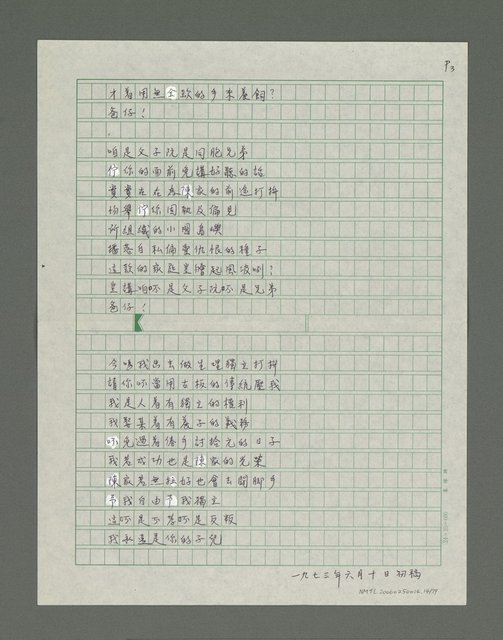 P3
才著用無仝款的手來養飼？
爸仔！
咱是父子阮是同胞兄弟
佇你的面前免講好聽的話
實實在在為陳家的前途打拼
佇你固執及偏見
所組織的小團島嶼
播落自私偏愛仇恨的種子
這款的家庭豈會起風波喲？
豈講咱呣是父子阮呣是兄弟
爸仔！
今嗎我出去做生理獨立打拼
請你呣當用古板的傳統壓我
我是人著有獨立的權利
我娶某著有養子的義務
呣免過著伸手討拾元的日子
我若成功也是陳家的光榮
陳家若無拉好也會去開腳手
予我自由予我獨立
這呣是不孝呣是反叛
我永遠是你的子兒
一九七三年六月十日初稿
NMTL 20060250016